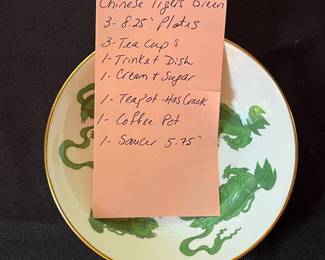 Chinese Tigers Green
3- 8.25" Plates
3- Tea Cups
1- Trinket Dish
1- Cream + Sugar
1- Teapot -Has Crack
1- Coffee Pot
1- Saucer 5.75"